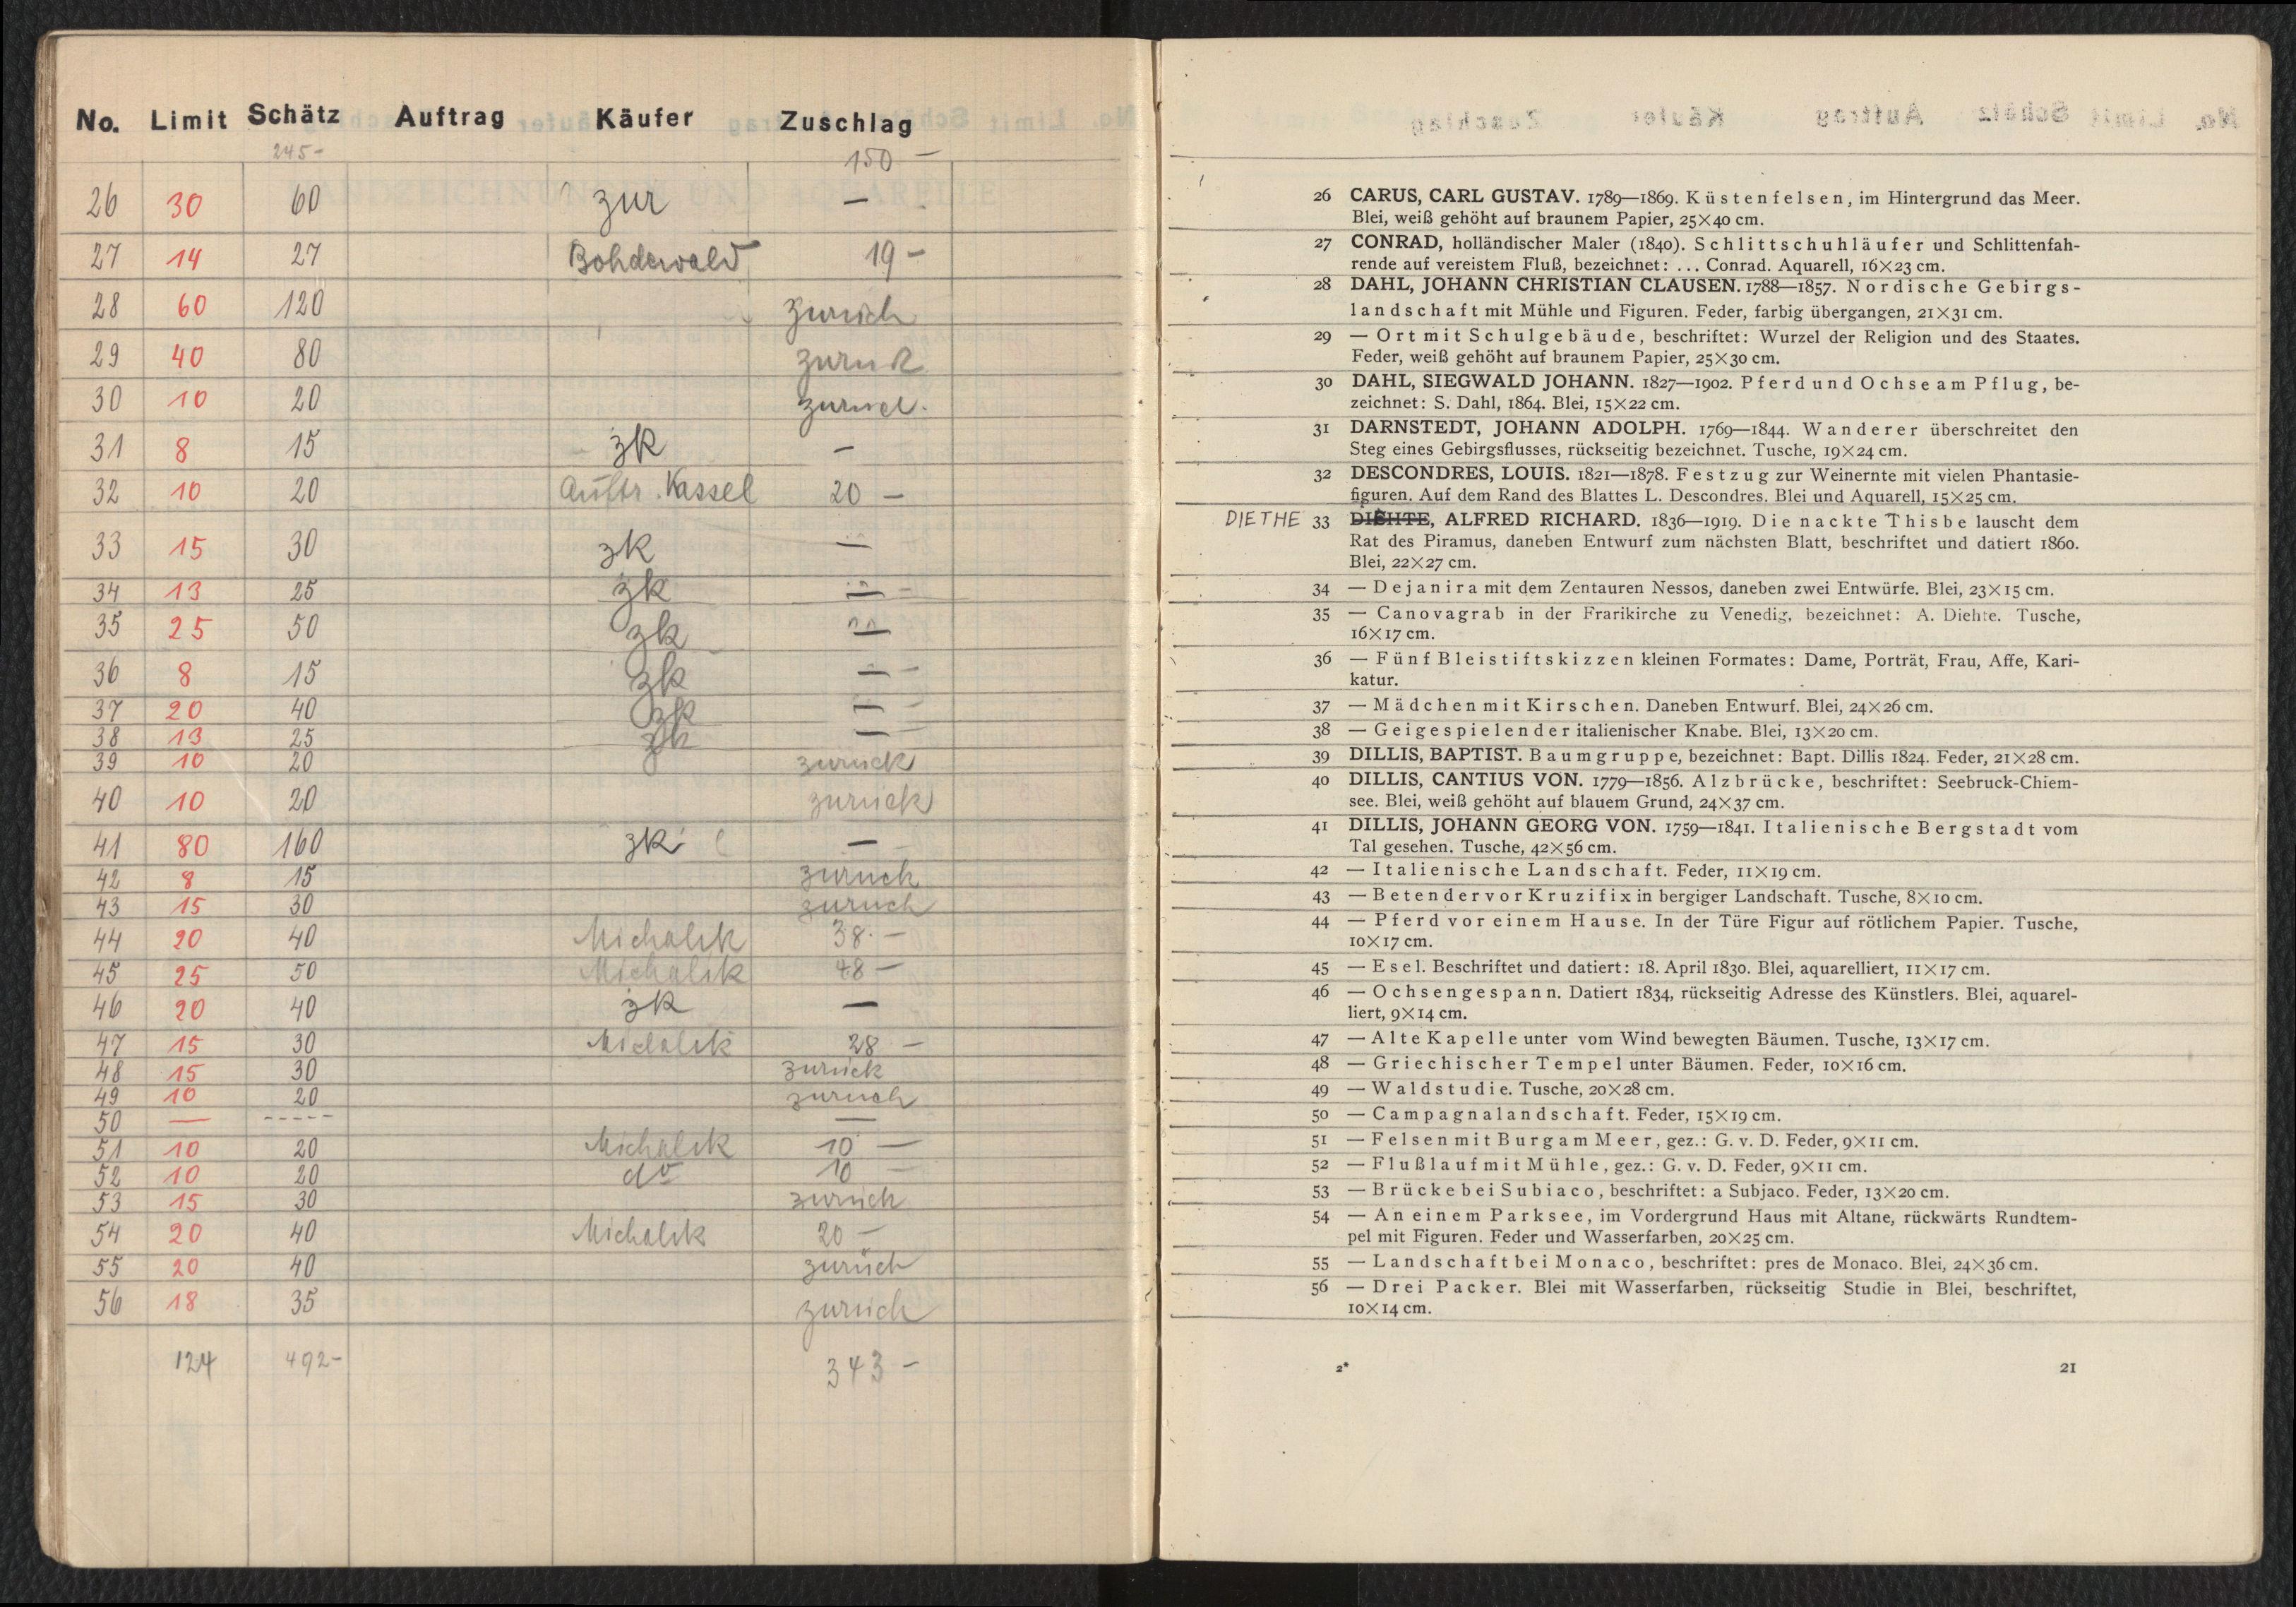 No. Limit Schätz Auftrag Käufer Zuschlag
245- 150 —
26 30 60 zur —
27 14 27 Bohdewald 19 -
28 60 120 zurück
29 40 80 zurück
30 10 20 zurück.
31 8 15 zk —
32 10 20 Auftr. Kassel 20 —
33 15 30 zk —
34 13 25 zk —
35 25 50 zk —
36 8 15 zk —
37 20 40 zk —
38 13 25 zk —
39 10 20 zurück
40 10 20 zurück
41 80 160 zk —
42 8 15 zurück
43 15 30 zurück
44 20 40 Michalik 38.—
45 25 50 Michalik 48 —
46 20 40 zk —
47 15 30 Michalik 28 —
48 15 30 zurück
49 10 20 zurück
50 — ----- —
51 10 20 Michalik 10 —
52 10 20 do 10 —
53 15 30 zurück
54 20 40 Michalik 20 —
55 20 40 zurück
56 18 35 zurück
124 492- 343 —
26 CARUS, CARL GUSTAV. 1789—1869. Küstenfelsen, im Hintergrund das Meer.
Blei, weiß gehöht auf braunem Papier, 25×40 cm.
27 CONRAD, holländischer Maler (1840). Schlittschuhläufer und Schlittenfah-
rende auf vereistem Fluß, bezeichnet: ... Conrad. Aquarell, 16×23 cm.
28 DAHL, JOHANN CHRISTIAN CLAUSEN. 1788—1857. Nordische Gebirgs-
landschaft mit Mühle und Figuren. Feder, farbig übergangen, 21×31 cm.
29 — Ort mit Schulgebäude, beschriftet: Wurzel der Religion und des Staates.
Feder, weiß gehöht auf braunem Papier, 25×30 cm.
30 DAHL, SIEGWALD JOHANN. 1827—1902. Pferd und Ochse am Pflug, be-
zeichnet: S. Dahl, 1864. Blei, 15×22 cm.
31 DARNSTEDT, JOHANN ADOLPH. 1769—1844. Wanderer überschreitet den
Steg eines Gebirgsflusses, rückseitig bezeichnet. Tusche, 19×24 cm.
32 DESCONDRES, LOUIS. 1821—1878. Festzug zur Weinernte mit vielen Phantasie-
figuren. Auf dem Rand des Blattes L. Descondres. Blei und Aquarell, 15×25 cm.
DIETHE 33 DIEHTE, ALFRED RICHARD. 1836—1919. Die nackte Thisbe lauscht dem
Rat des Piramus, daneben Entwurf zum nächsten Blatt, beschriftet und datiert 1860.
Blei, 22×27 cm.
34 — Dejanira mit dem Zentauren Nessos, daneben zwei Entwürfe. Blei, 23×15 cm.
35 — Canovagrab in der Frarikirche zu Venedig, bezeichnet: A. Diehte. Tusche,
16×17 cm.
36 — Fünf Bleistiftskizzen kleinen Formates: Dame, Porträt, Frau, Affe, Kari-
katur.
37 — Mädchen mit Kirschen. Daneben Entwurf. Blei, 24×26 cm.
38 — Geigespielender italienischer Knabe. Blei, 13×20 cm.
39 DILLIS, BAPTIST. Baumgruppe, bezeichnet: Bapt. Dillis 1824. Feder, 21×28 cm.
40 DILLIS, CANTIUS VON. 1779—1856. Alzbrücke, beschriftet: Seebruck-Chiem-
see. Blei, weiß gehöht auf blauem Grund, 24×37 cm.
41 DILLIS, JOHANN GEORG VON. 1759—1841. Italienische Bergstadt vom
Tal gesehen. Tusche, 42×56 cm.
42 — Italienische Landschaft. Feder, 11×19 cm.
43 — Betender vor Kruzifix in bergiger Landschaft. Tusche, 8×10 cm.
44 — Pferd vor einem Hause. In der Türe Figur auf rötlichem Papier. Tusche,
10×17 cm.
45 — Esel. Beschriftet und datiert: 18. April 1830. Blei, aquarelliert, 11×17 cm.
46 — Ochsengespann. Datiert 1834, rückseitig Adresse des Künstlers. Blei, aquarel-
liert, 9×14 cm.
47 — Alte Kapelle unter vom Wind bewegten Bäumen. Tusche, 13×17 cm.
48 — Griechischer Tempel unter Bäumen. Feder, 10×16 cm.
49 — Waldstudie. Tusche, 20×28 cm.
50 — Campagnalandschaft. Feder, 15×19 cm.
51 — Felsen mit Burg am Meer, gez.: G. v. D. Feder, 9×11 cm.
52 — Flußlauf mit Mühle, gez.: G. v. D. Feder, 9×11 cm.
53 — Brücke bei Subiaco, beschriftet: a Subjaco. Feder, 13×20 cm.
54 — An einem Parksee, im Vordergrund Haus mit Altane, rückwärts Rundtem-
pel mit Figuren. Feder und Wasserfarben, 20×25 cm.
55 — Landschaft bei Monaco, beschriftet: pres de Monaco. Blei, 24×36 cm.
56 — Drei Packer. Blei mit Wasserfarben, rückseitig Studie in Blei, beschriftet,
10×14 cm.
2* 21